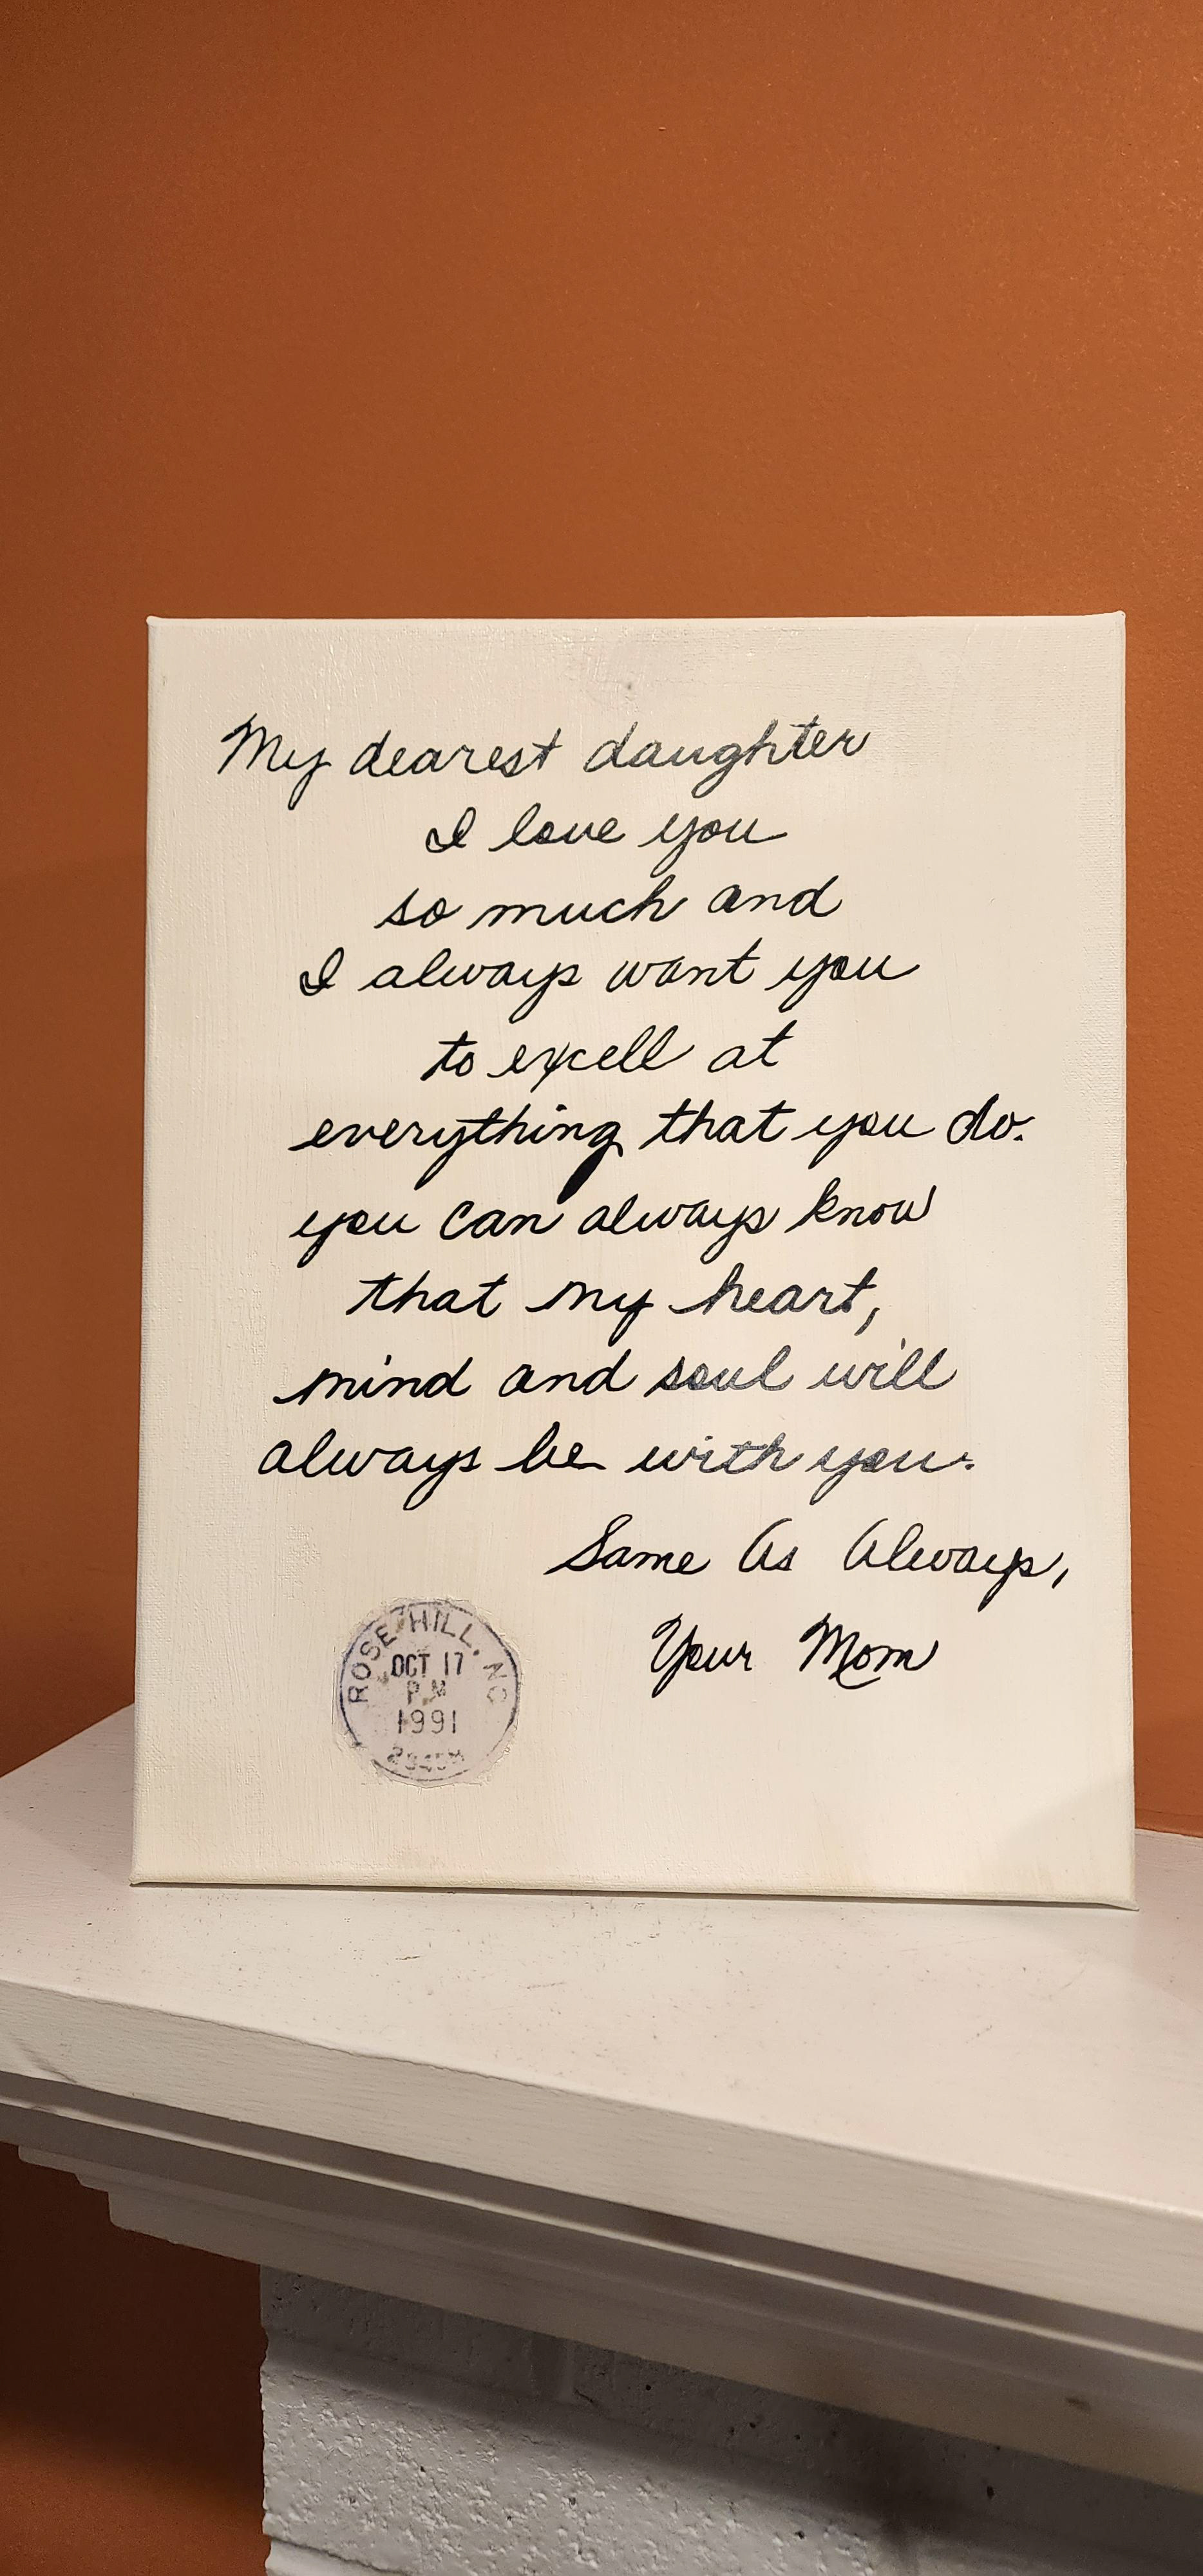 My dearest daughter
I love you
so much and
I always want you
to excell at
everything that you do.
you can always know
that my heart,
mind and soul will
always be with you.
Same As Always,
Your Mom
ROSE HILL, NC
OCT 17
P.M
1991